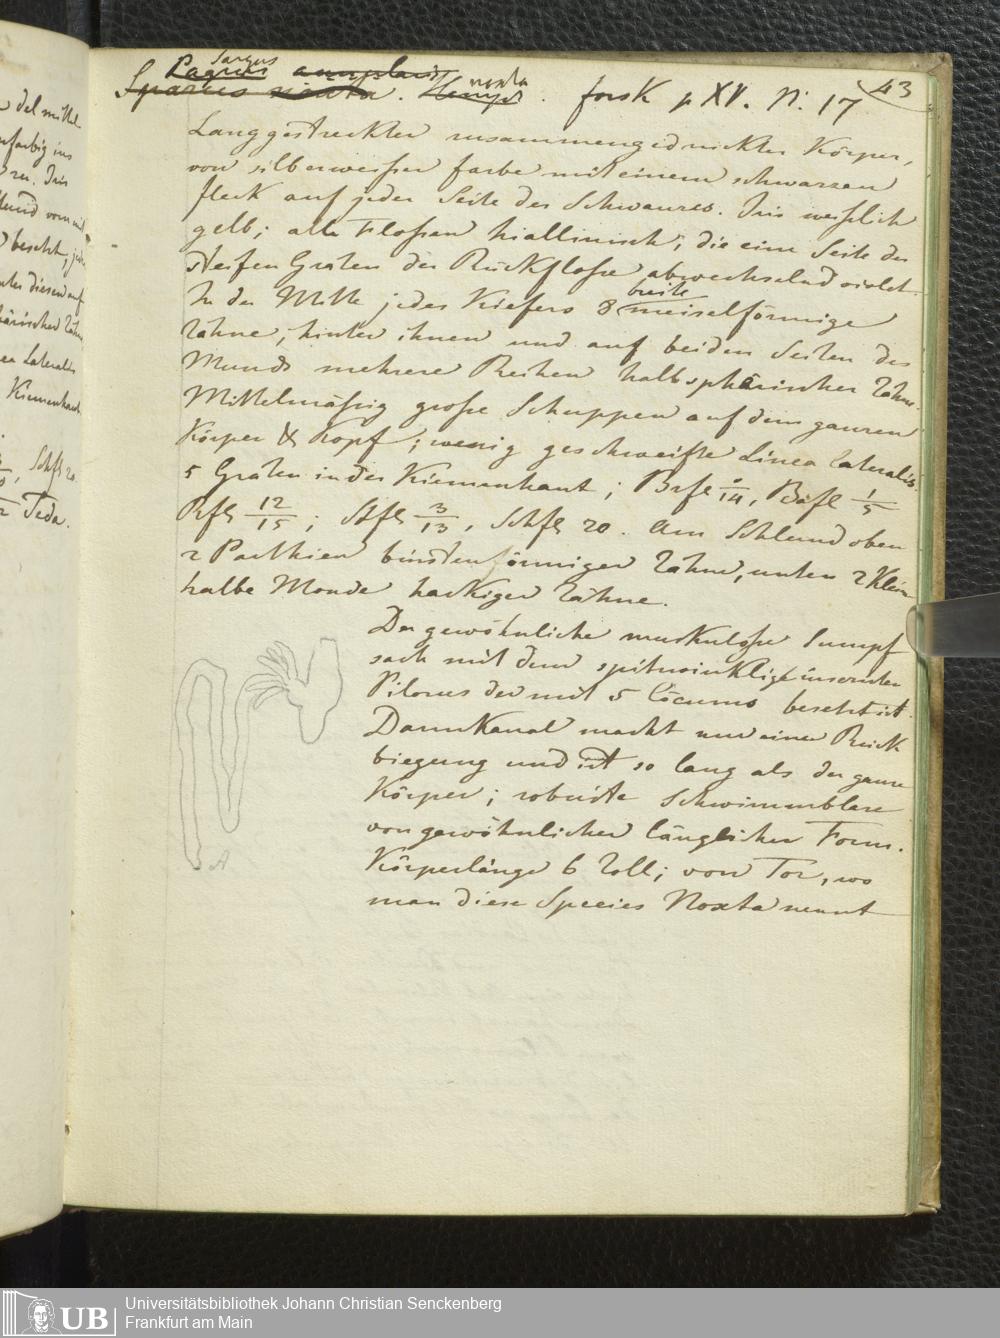 43
Sargus
Pagrus
Sparus noxta. Hempr. noxta forsk p XV. N. 17
Langgestreckter zusammengedrückter Körper,
von silberweisser farbe mit einem schwarzen
fleck auf jeder Seite des Schwanzes. Iris weislich
gelb; alle Flossen hiallinisch; die eine Seite der
steifen Graten der Rückflosse abwechselnd violet.
In der Mitte jedes Kiefers 8 breite meiselförmige
Zähne, hinter ihnen und auf beiden Seiten des
Munds mehrere Reihen halbsphärischer Zähne.
Mittelmäsig grose Schuppen auf dem ganzen
Körper & Kopf; wenig geschweifte Linea lateralis.
5 Graten in der Kiemenhaut; Brfl 0/14, Bafl 1/5
Rfl 12/15; Stfl 3/13, Schfl 20. Am Schlund oben
2 Parthien bürstenförmiger Zähne, unten 2 kleine
halbe Monde hackiger Zähne.
Der gewöhnliche muskulose Stumpf
sack mit dem spitzwinklig
Pilorus der mit 5 Cöcums besetzt ist.
Darmkanal macht nur eine Rück
biegung und ist so lang als der ganze
Körper; robuste Schwimmblase
von gewöhnlicher länglicher Form.
Körperlänge 6 Zoll; von Tor, wo
man diese Species Noxta nennt
A
del mittel
farbig ins
Iris
Mund vorn mit
besetzt, jede
unter diesen auf
sphärischer Zähne
Linea Lateralis
Kiemenhaut
, Schfl 20.
Teda.
UB
Universitätsbibliothek Johann Christian Senckenberg
Frankfurt am Main